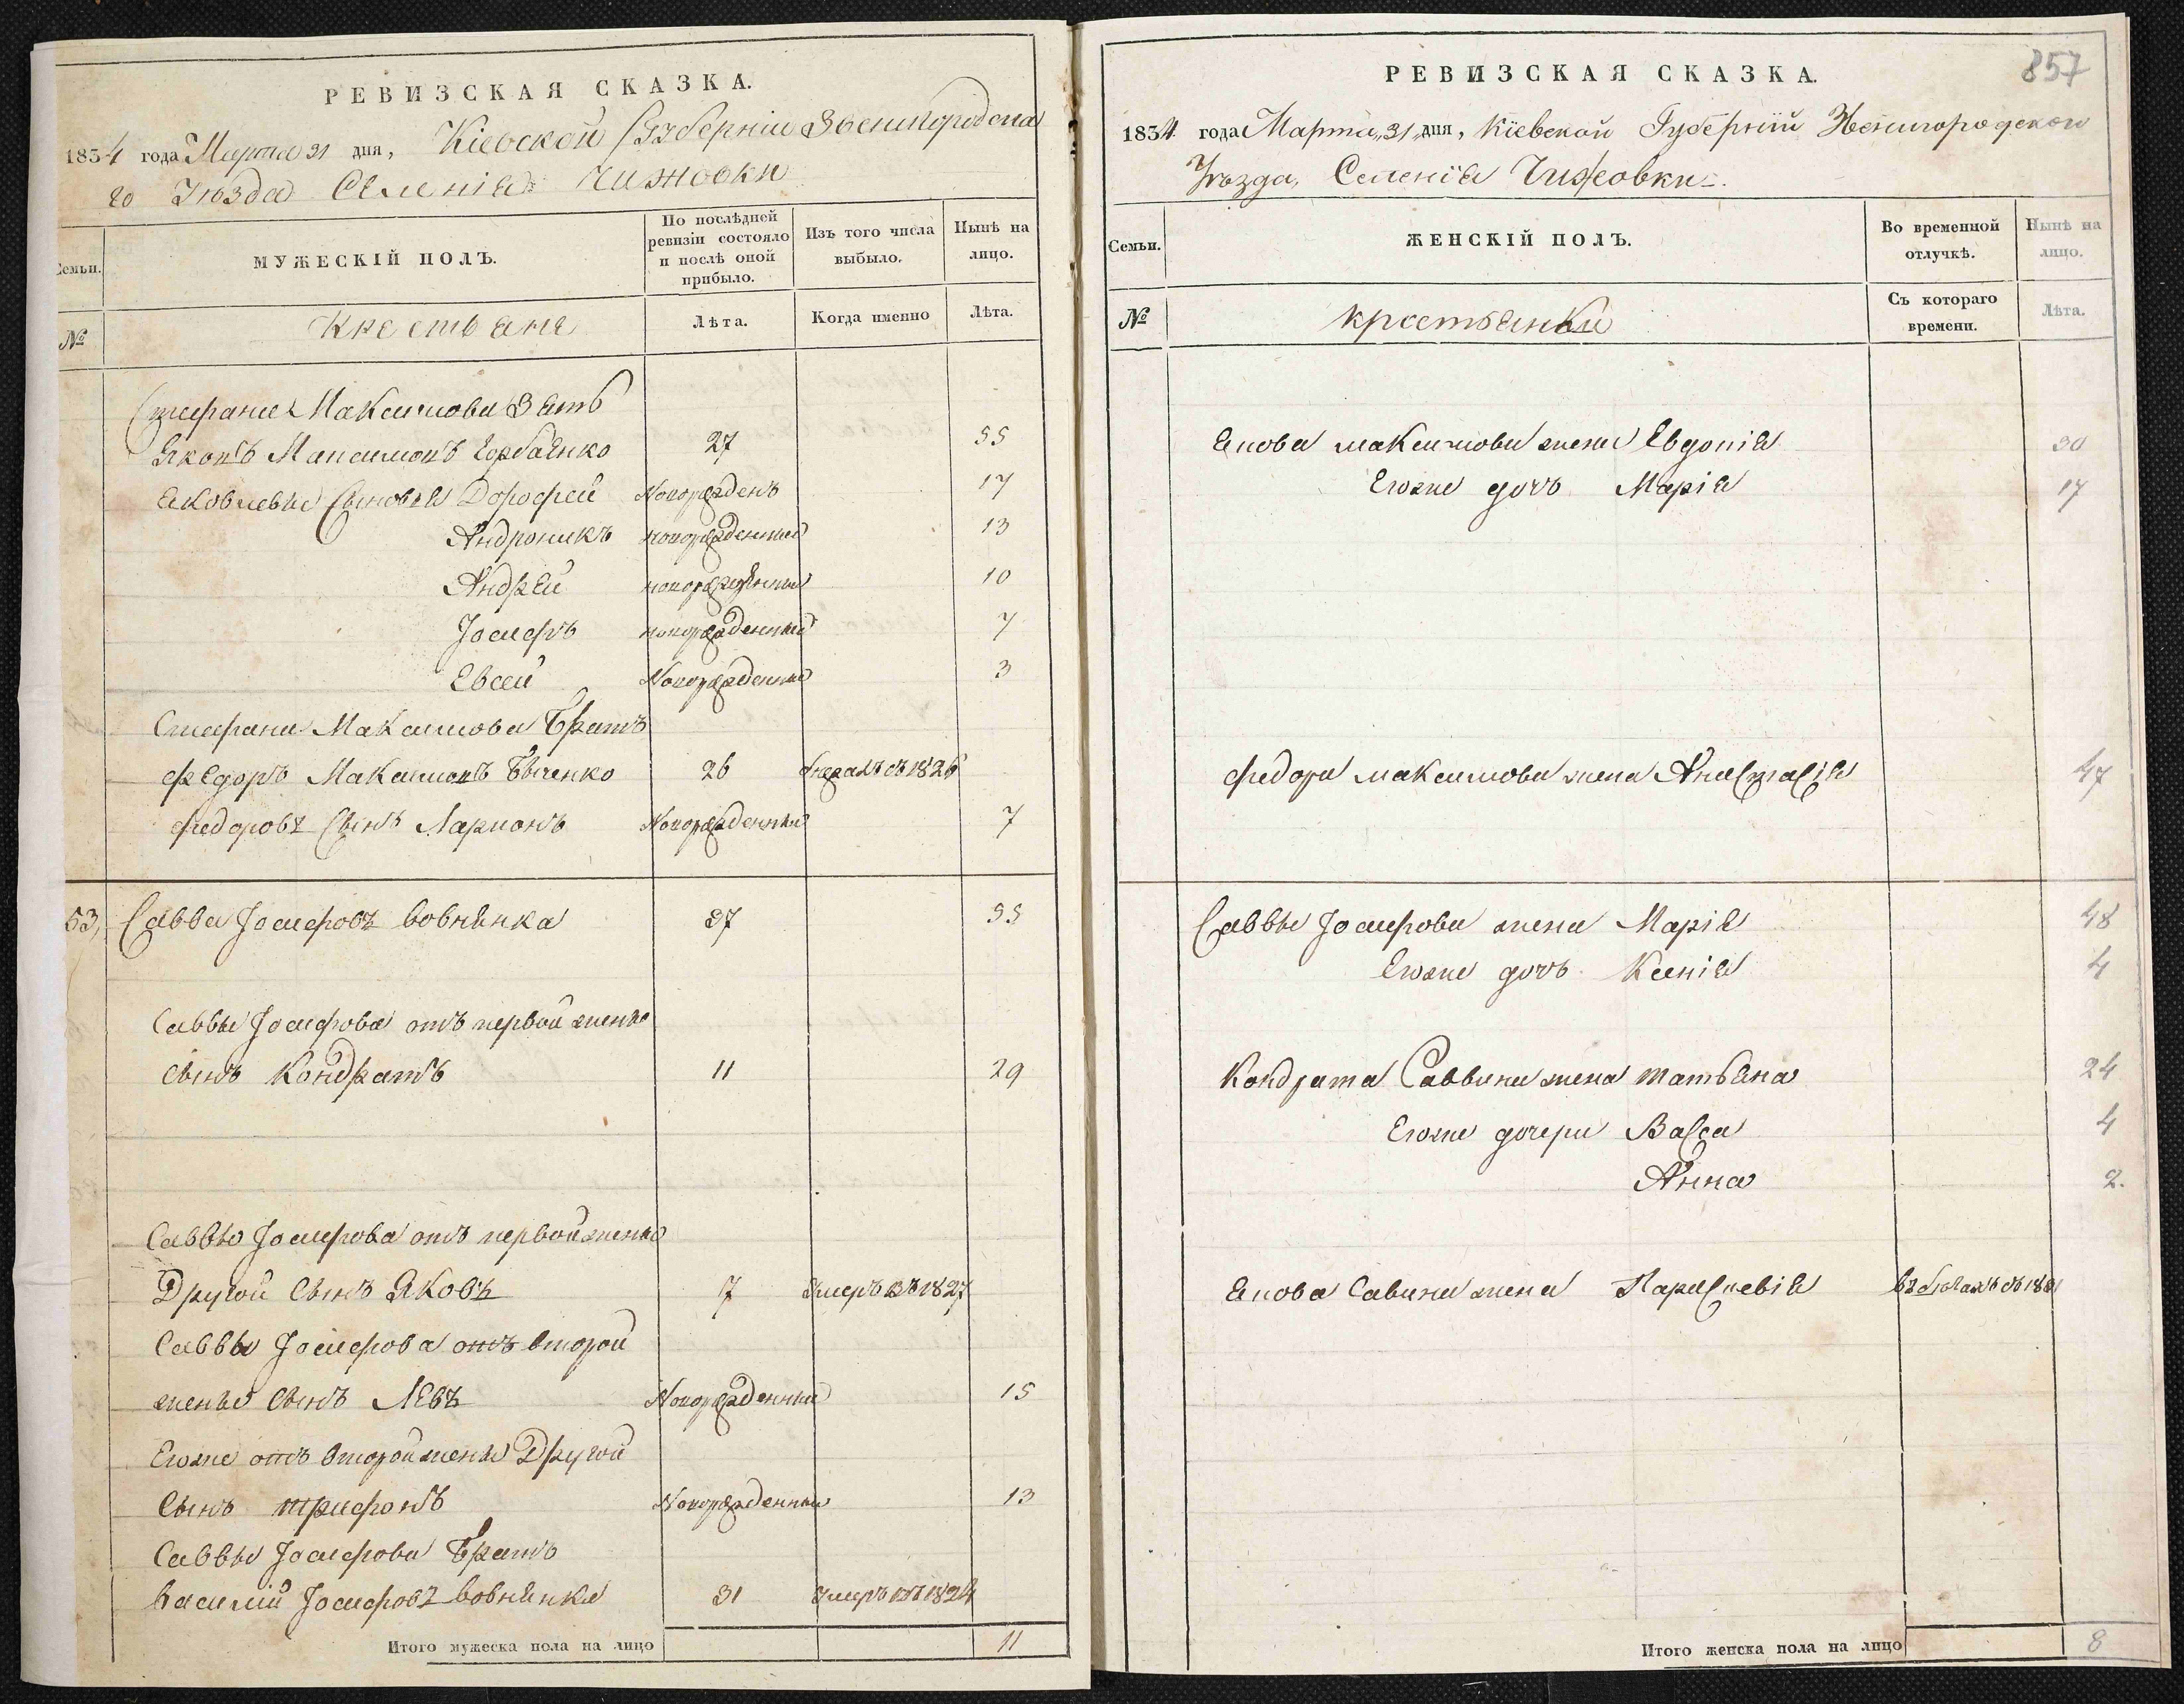 РЕВИЗСКАЯ СКАЗКА.
1834 года Марта 31 дня, Кіевской Губерніи Звенигородска
го Уѣзда Селенія Чижовки
Семьи.
МУЖЕСКІЙ ПОЛЪ.
По послѣдней ревизіи состояло и послѣ оной прибыло.
Изъ того числа выбыло.
Нынѣ на лицо.
№
Крестьяне
Лѣта.
Когда именно
Лѣта.
Стефана Максимова Зять
Яковъ Максимовъ Горбаенко 27 55
Яковлевы Сыновья Дорофей Новорожденъ 17
Андроникъ новорожденный 13
Андрей новорожденный 10
Іосифъ новорожденный 7
Евсей Новорожденный 3
Стефана Максимова Братъ
Федоръ Максимовъ Быченко 26 бежалъ въ 1826
Федоровъ Сынъ Ларионъ Новорожденный 7
53, Савва Іосифовъ Вовнянка 37 55
Саввы Іосифова отъ первой жены
сынъ Кондратъ 11 29
Саввы Іосифова отъ первой жены
Другой Сынъ Яковъ 7 Умеръ въ 1827
Саввы Іосифова отъ второй
жены Сынъ Левъ Новорожденный 15
Егоже отъ второй жены Другой
Сынъ Трифонъ Новорожденный 13
Саввы Іосифова Братъ
Василій Іосифовъ Вовнянка 31 Умеръ въ 1824
Итого мужеска пола на лицо 11
857
РЕВИЗСКАЯ СКАЗКА.
1834 года Марта „31„ дня, Кіевской Губерніи Звенигородскои
Уѣзда, Селенія Чижовки.
Семьи.
ЖЕНСКІЙ ПОЛЪ.
Во временной отлучкѣ.
Нынѣ на лицо.
№
крестьянки
Съ котораго времени.
Лѣта.
Якова Максимова жена Евдокія 30
Егоже дочь Марія 17
Федора Максимова жена Анастасія 47
Саввы Іосифова жена Марія 48
Егоже дочь Ксенія 4
Кондрата Саввина жена Татьяна 24
Егоже дочери Васса 4
Анна 2.
Якова Савина жена Параскевія
Итого женска пола на лицо 8